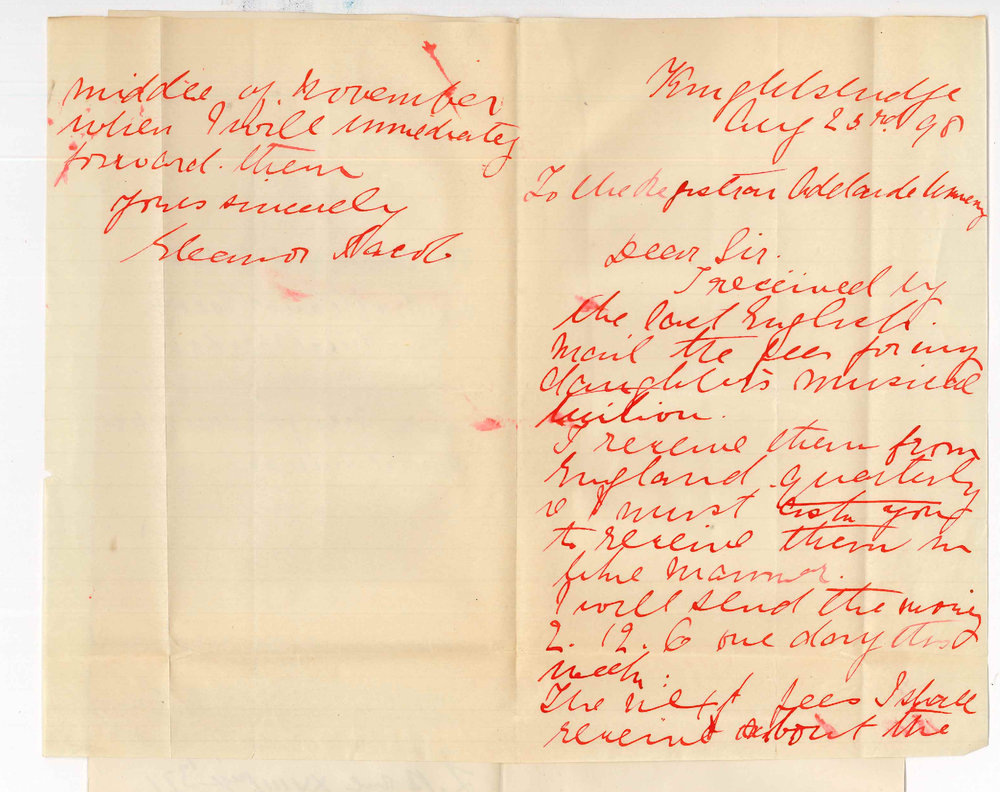 Knightsbridge
Aug 23rd 98
To the Registrar Adelaide University
Dear Sir.
I received by
the last English.
Mail the fees for my
daughters musical
tuition.
I receive them from
England quarterly
& I must ask you
to receive them in
like manner.
I will send the money
2. 12. 6 one day this
week.
The next fees I shall
receive about the
middle of November
when I will immediately
forward them
Yours sincerely
Eleanor Jacob